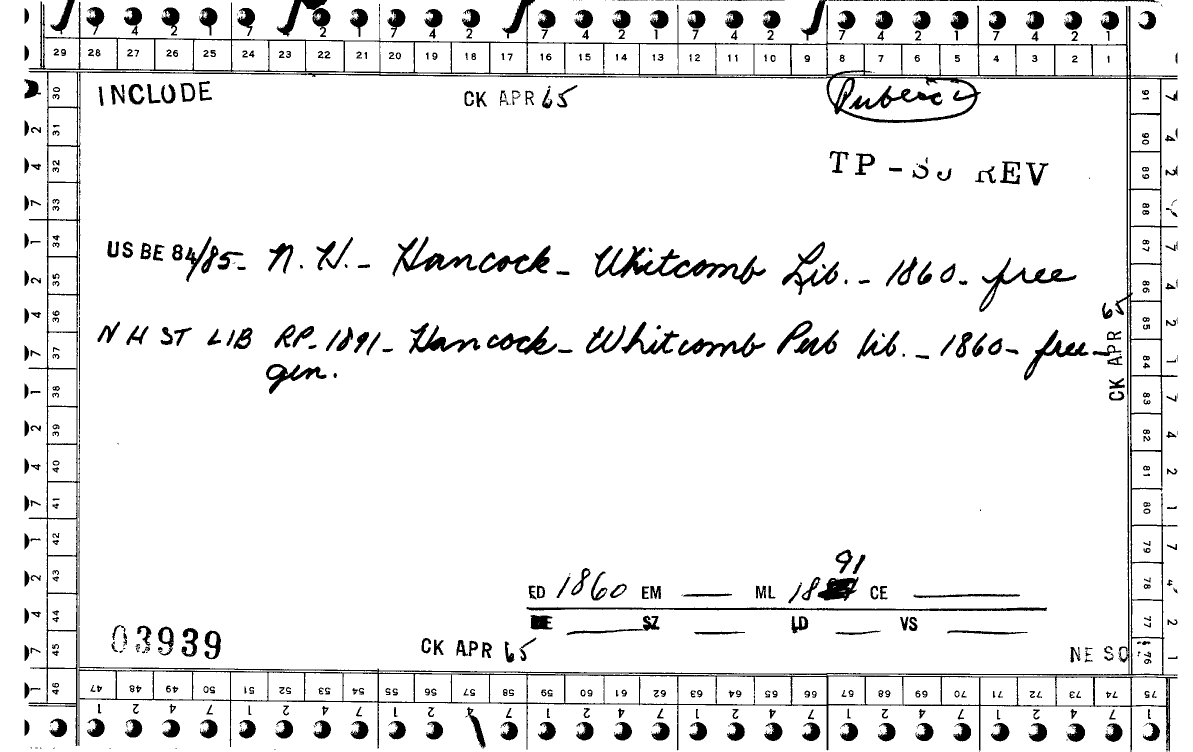 7 4 2 1 7 4 2 1 7 4 2 1 7 4 2 1 7 4 2 1
29 28 27 26 25 24 23 22 21 20 19 18 17 16 15 14 13 12 11 10 9 8 7 6 5 4 3 2 1
INCLUDE CK APR 65
TP - REV
US BE 84/85- N. H. - Hancock - Whitcomb Lib. - 1860 - free
N H ST LIB RP - 1891 - Hancock - Whitcomb Pub lib. - 1860 - free -
gen.
CK APR 65
91
ED 1860 EM ML 18 CE
SZ LD VS
03939 CK APR 65 NE SO
30 31 32 33 34 35 36 37 38 39 40 41 42 43 44 45 46
91 90 89 88 87 86 85 84 83 82 81 80 79 78 77 76 75
47 48 49 50 51 52 53 54 55 56 57 58 59 60 61 62 63 64 65 66 67 68 69 70 71 72 73 74 75
1 2 4 7 1 2 4 7 1 2 4 7 1 2 4 7 1 2 4 7 1 2 4 7